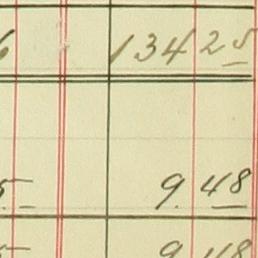 6 134 25
5 9.48
5 9.48